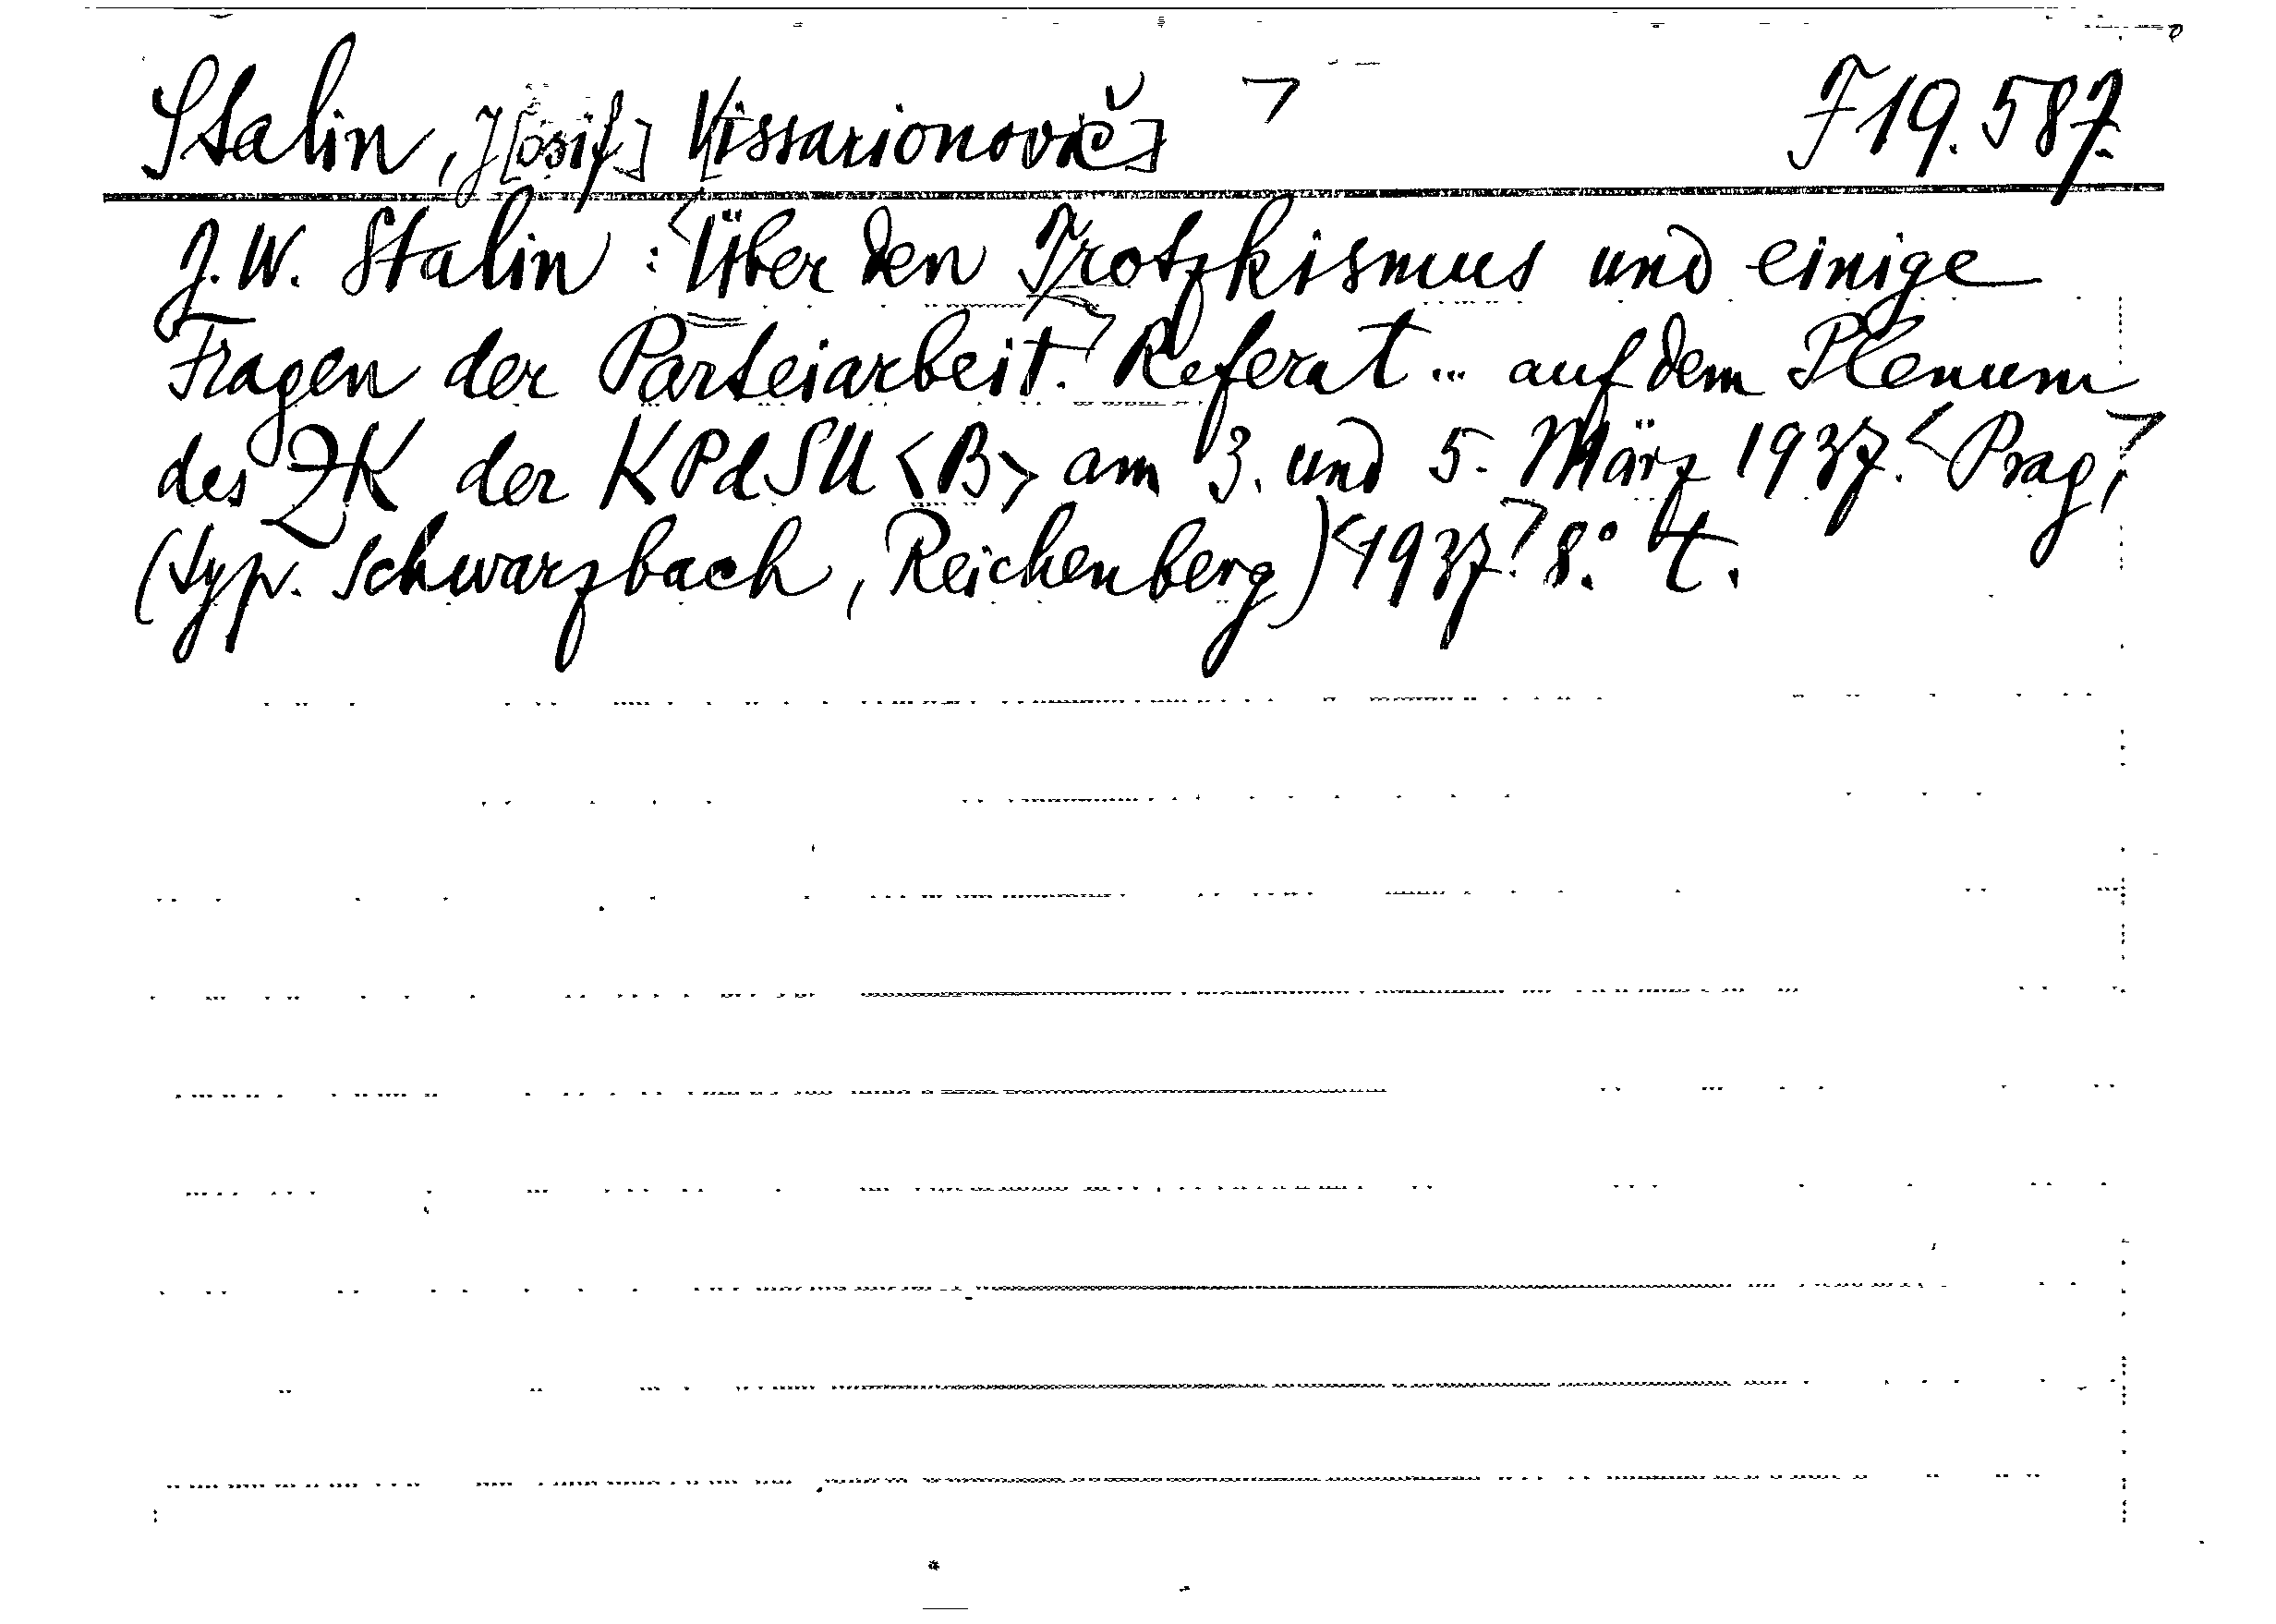 Stalin, J[osif] V[issarionovič] ¬ F 19.587.
J. W. Stalin: <Über den Trotzkismus und einige
Fragen der Parteiarbeit.¬ Referat ... auf dem Plenum
des ZK der KPdSU <B> am 3. und 5. März 1937. <Prag,¬
(typ. Schwarzbach, Reichenberg) <1937.¬ 8.° 4.